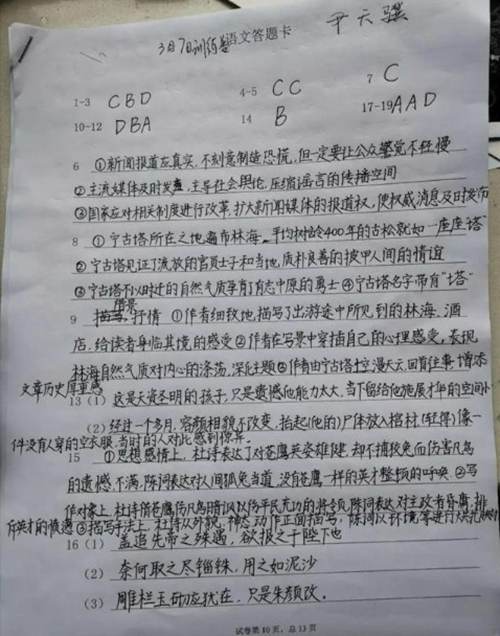 尹天骐
3月7日训练卷语文答题卡
1-3 CBD 4-5 CC 7 C
10-12 DBA 14 B 17-19 AAD
6 ①新闻报道应真实,不刻意制造恐慌,但一定要让公众警觉不轻慢
②主流媒体及时发声,主导社会舆论,压缩谣言的传播空间
③国家应对相关制度进行改革,扩大新闻媒体的报道权,使权威消息及时发布
8 ①宁古塔所在之地遍布林海,平均树龄400年的古松就如一座座“塔”
②宁古塔见证了流放的官员士子和当地质朴良善的披甲人间的情谊
③宁古塔不以时迁的自然气质孕育了有志中原的勇士④宁古塔名字带有“塔”
借景
9 抒情 ①作者细致地描写了出游途中所见到的林海、酒
店,给读者身临其境的感受②作者在写景中穿插自己的心理感受,表现
林海自然气质对内心的涤荡,深化主题③作者由宁古塔上空漫天云,回首往事,增添
文章历史厚重感
13(1) 这是天资圣明的孩子,只是遗憾他能力太大,当下留给他施展才华的空间小
(2)经过一个多月,容颜相貌不改变,抬起(他的)尸体放入棺材,(轻得)像一
件没有人穿的空衣服,当时的人对此感到惊异。
15 ①思想感情上,杜诗表达了对苍鹰英姿雄健,却不捕狡兔而伤害凡鸟
的遗憾、不满,陈词表达对人间狐兔当道,没有苍鹰一样的英才整顿的呼唤②写
作对象上,杜诗借苍鹰伤凡鸟讽以伤平民充功的将领,陈词表达对主政者昏庸,排
斥英才的愤懑③描写手法上,杜诗从外貌、神态、动作正面描写,陈词以环境等进行
16(1) 盖追先帝之殊遇,欲报之于陛下也
(2) 奈何取之尽锱铢,用之如泥沙
(3) 雕栏玉砌应犹在,只是朱颜改。
试卷第10页,总13页